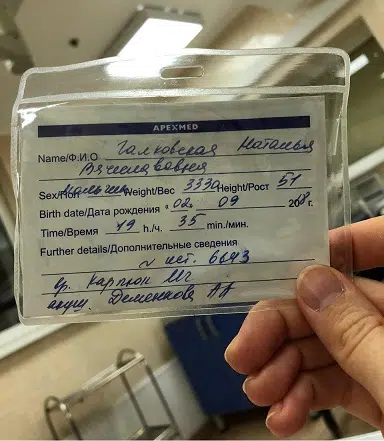 APEXMED
Name/Ф.И.О Галковская Наталья
Вячеславовна
Sex/Пол Мальчик Weight/Вес 3330 Height/Рост 51
Birth date/Дата рождения "02 09 2018г.
Time/Время 19 h./ч. 35 min./мин.
Further details/Дополнительные сведения
~ ист. 6643
вр. Карпюк МГ
акуш. Деменкова АА